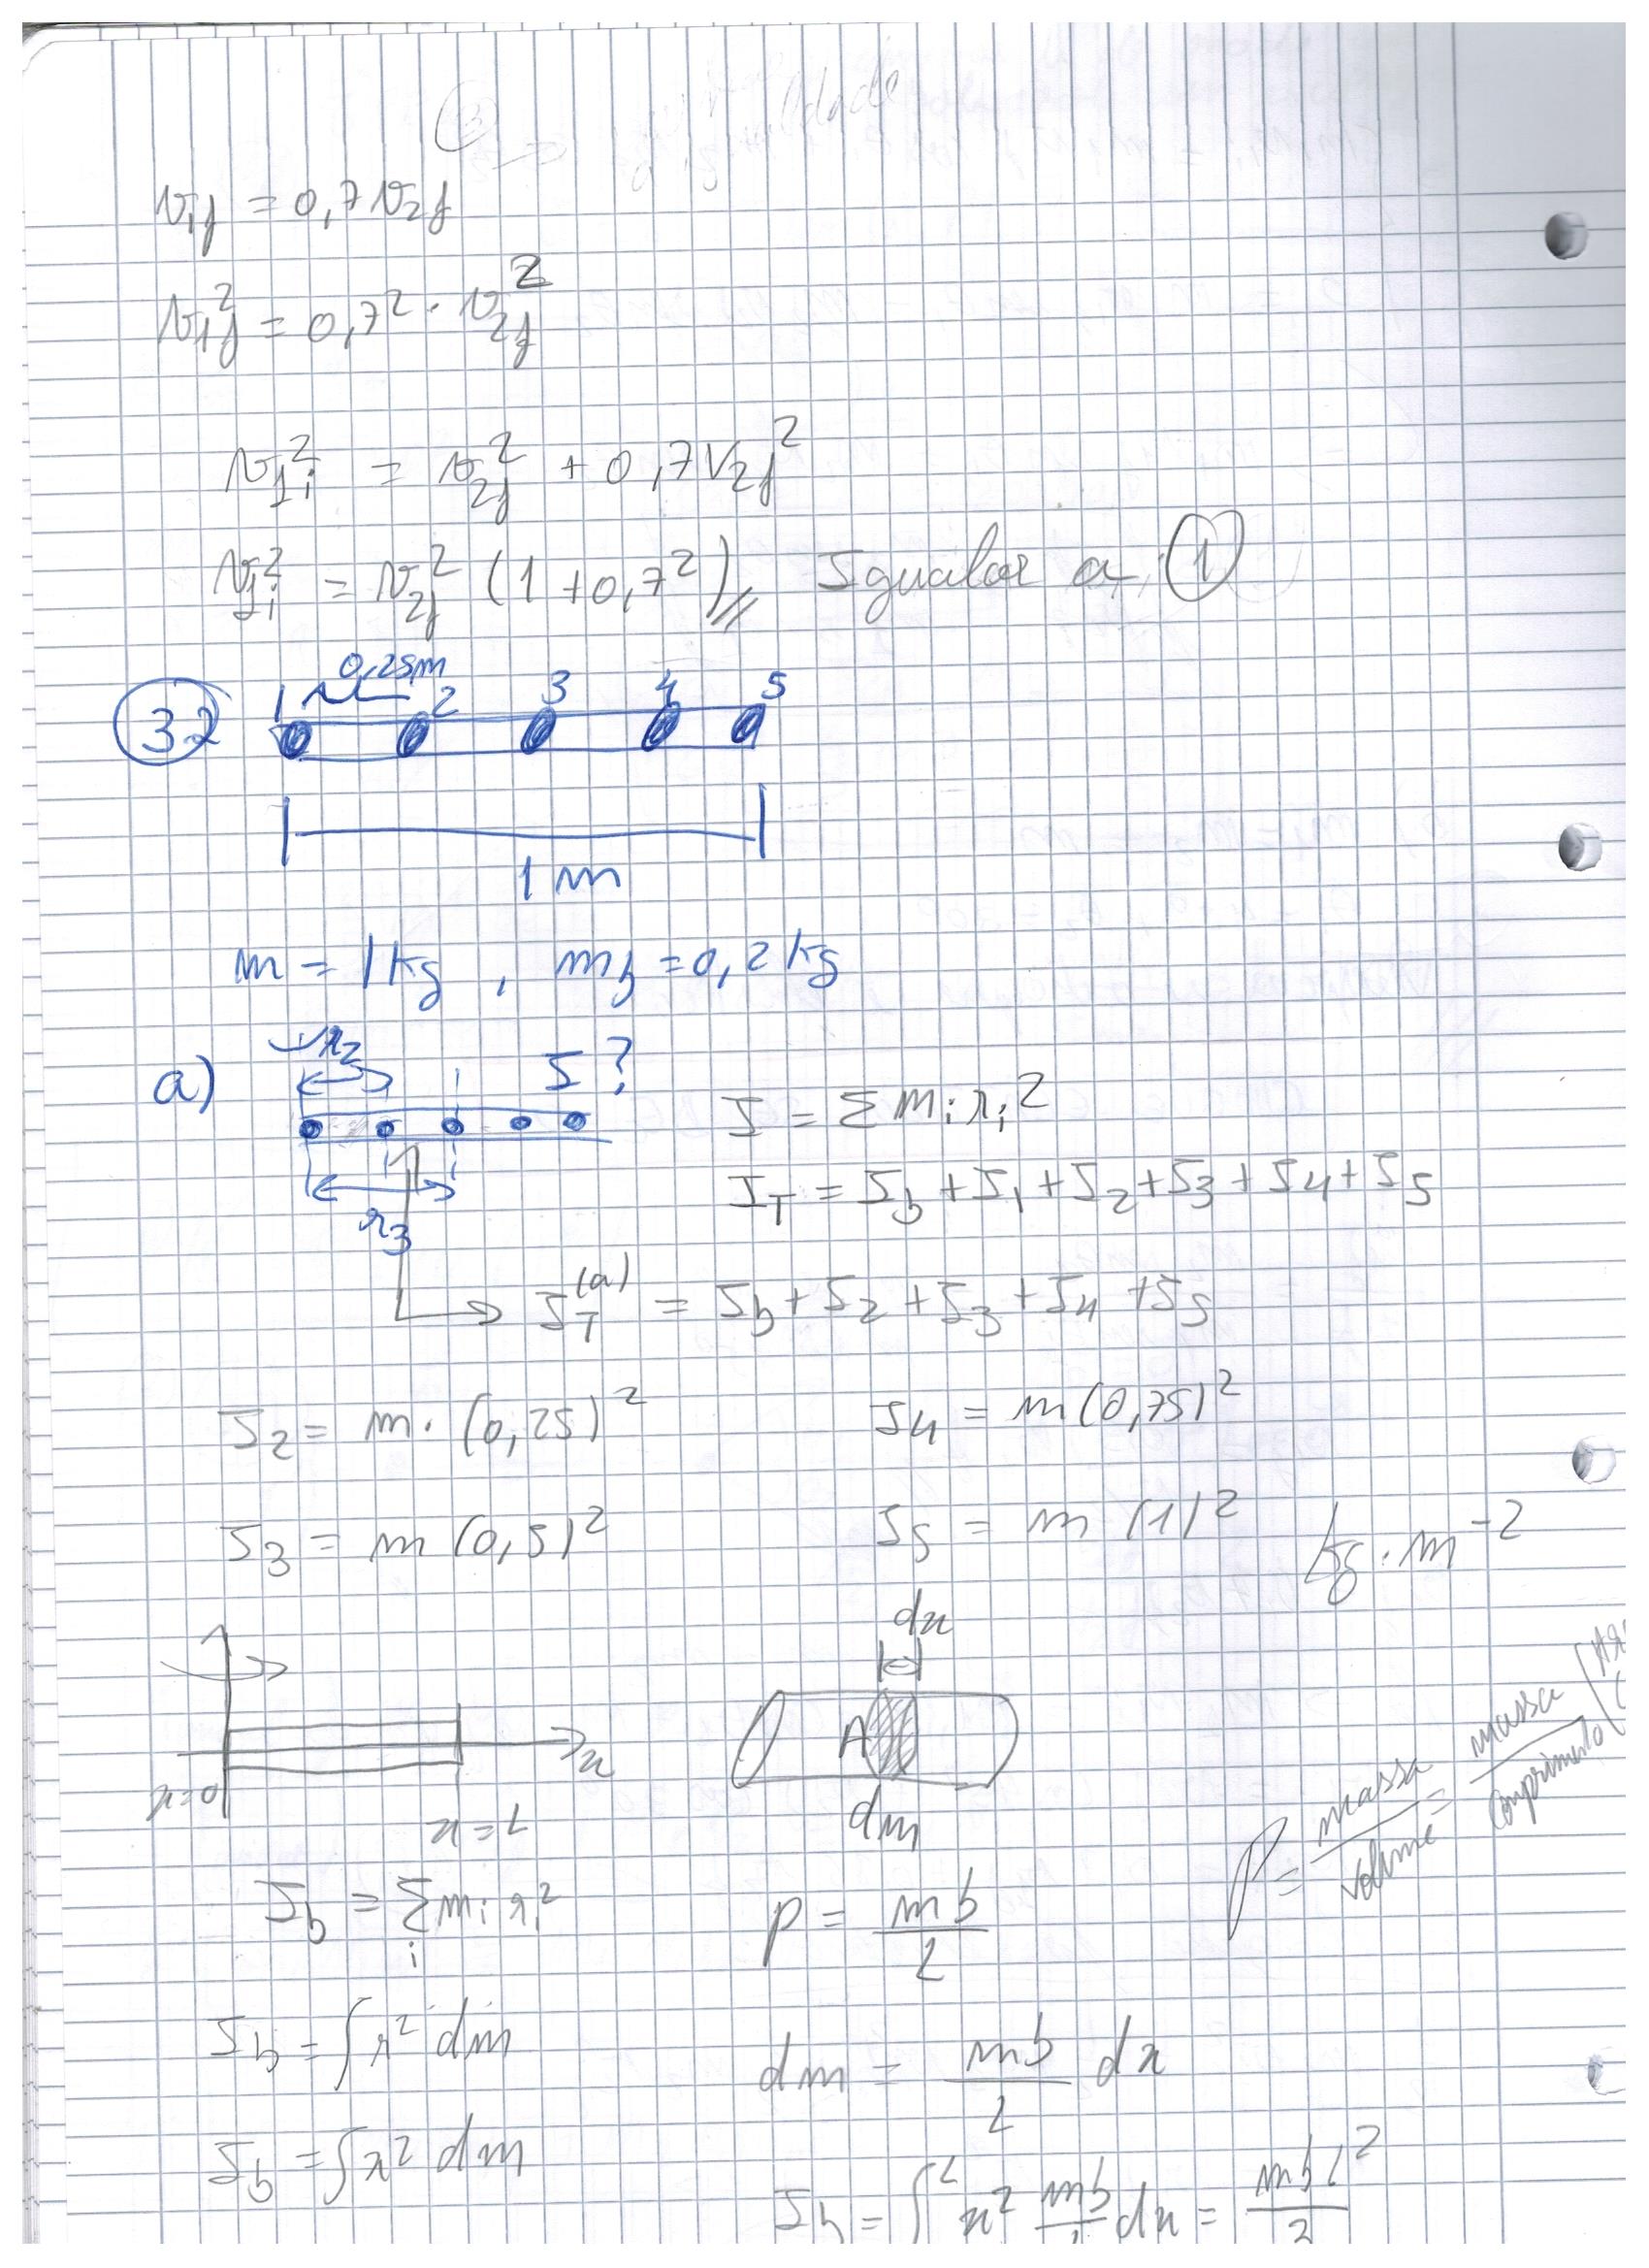 ③
v1f = 0,7 v2f
v1f² = 0,7² · v2f²
v1i² = v2f² + 0,7 v2f²
v1i² = v2f² (1 + 0,7²) Igualar a ①
0,25m
32 1 2 3 4 5
1 m
m = 1 kg , mb = 0,2 kg
r2
a) I ?
I = Σ mi ri²
IT = Ib + I1 + I2 + I3 + I4 + I5
r3
IT(a) = Ib + I2 + I3 + I4 + I5
I2 = m · (0,25)² I4 = m (0,75)²
I3 = m (0,5)² I5 = m (1)² kg · m⁻²
dx
A
x=0 x
x = L dm
ρ = massa/volume = massa/comprimento
Ib = Σi mi ri² ρ = mb/L
Ib = ∫ r² dm dm = mb/L dx
Ib = ∫ x² dm
Ib = ∫ᴸ x² mb/L dx = mb L²/3